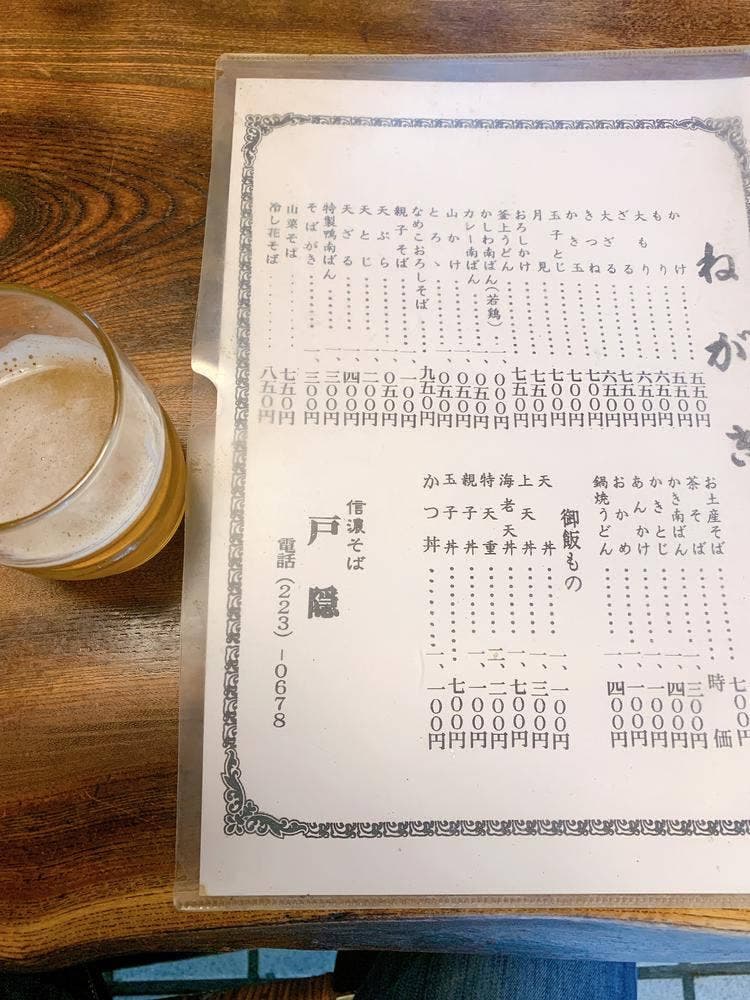 ねがき
かけ………五五〇円
もり………五五〇円
大もり………六五〇円
ざる………六五〇円
大ざる………七五〇円
きつね………六五〇円
かき玉………七〇〇円
玉子とじ………七〇〇円
月見………七〇〇円
おろしかけ………七五〇円
釜上うどん………七五〇円
かしわ南ばん(若鶏)…一、〇〇〇円
カレー南ばん………一、〇五〇円
山かけ………一、〇五〇円
とろゝ………一、〇五〇円
なめこおろしそば………九五〇円
親子そば………一、一〇〇円
天ぷら………一、〇五〇円
天とじ………一、二〇〇円
天ざる………一、四〇〇円
特製鴨南ばん………一、三〇〇円
そばがき………一、三〇〇円
山菜そば………七五〇円
冷し花そば………八五〇円
お土産そば………七〇〇円
茶そば………時価
かき南ばん………一、三〇〇円
かきとじ………一、四〇〇円
あんかけ………一、一〇〇円
おかめ………一、一〇〇円
鍋焼うどん………一、四〇〇円
御飯もの
天丼………一、一〇〇円
上天丼………一、三〇〇円
海老天丼………一、七〇〇円
特天重………二、二〇〇円
親子丼………一、一〇〇円
玉子丼………七〇〇円
かつ丼………一、一〇〇円
信濃そば
戸隠
電話(223)-0678